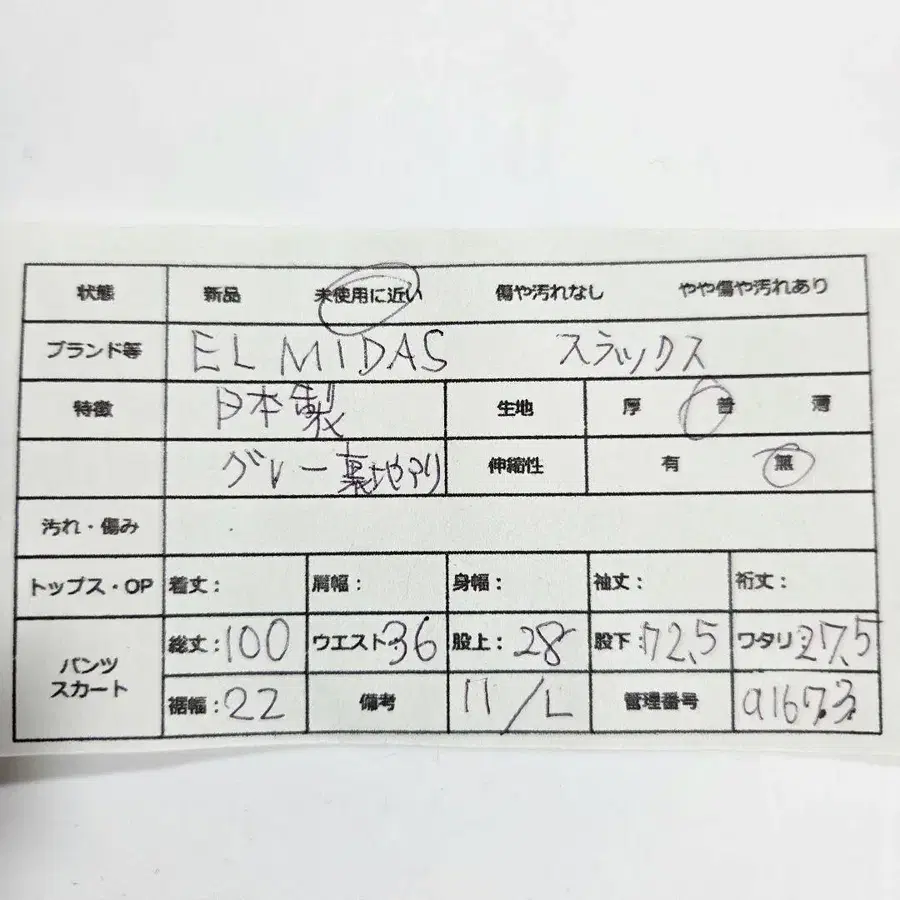 状態 新品 未使用に近い 傷や汚れなし やや傷や汚れあり
ブランド等 EL MIDAS スラックス
特徴 日本製 生地 厚 普 薄
グレー裏地あり 伸縮性 有 無
汚れ・傷み
トップス・OP 着丈: 肩幅: 身幅: 袖丈: 裄丈:
パンツ スカート 総丈:100 ウエスト36 股上:28 股下:72.5 ワタリ:27.5
裾幅:22 備考 11/L 管理番号 a1673